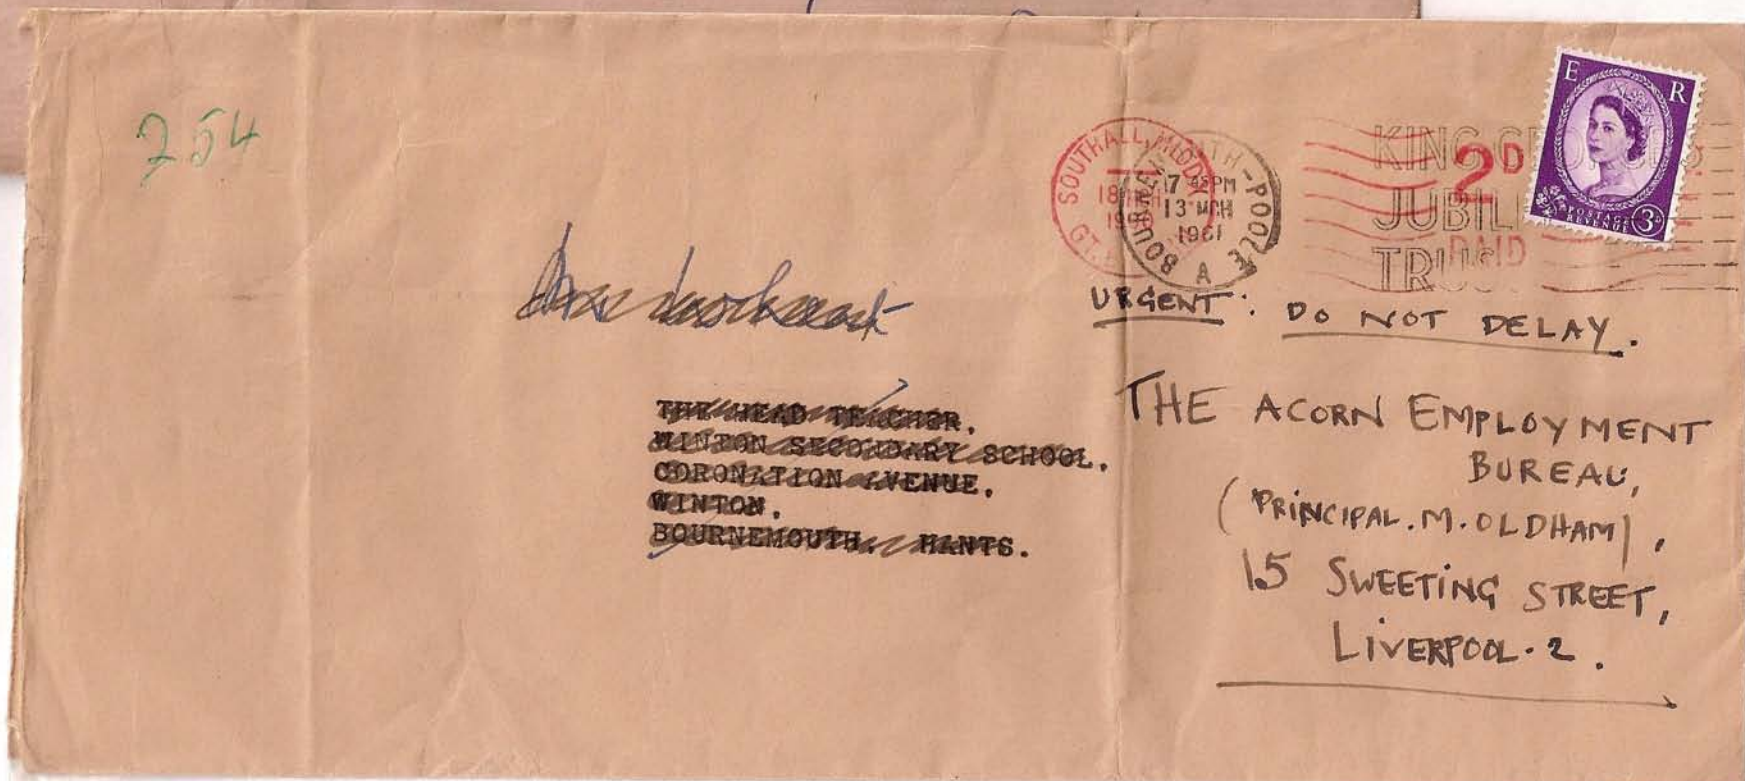 254
E R
POSTAGE
REVENUE
3D
SOUTHALL, MIDDX
18 MCH
GT.
2D
PAID
BOURNEMOUTH-POOLE
7 45PM
13 MCH
1961
A
KING GEORGE'S
JUBILEE
TRUST
URGENT: DO NOT DELAY.
THE HEAD TEACHER.
WINTON SECONDARY SCHOOL.
CORONATION AVENUE.
WINTON.
BOURNEMOUTH. HANTS.
THE ACORN EMPLOYMENT
BUREAU,
(PRINCIPAL. M. OLDHAM),
15 SWEETING STREET,
LIVERPOOL. 2.